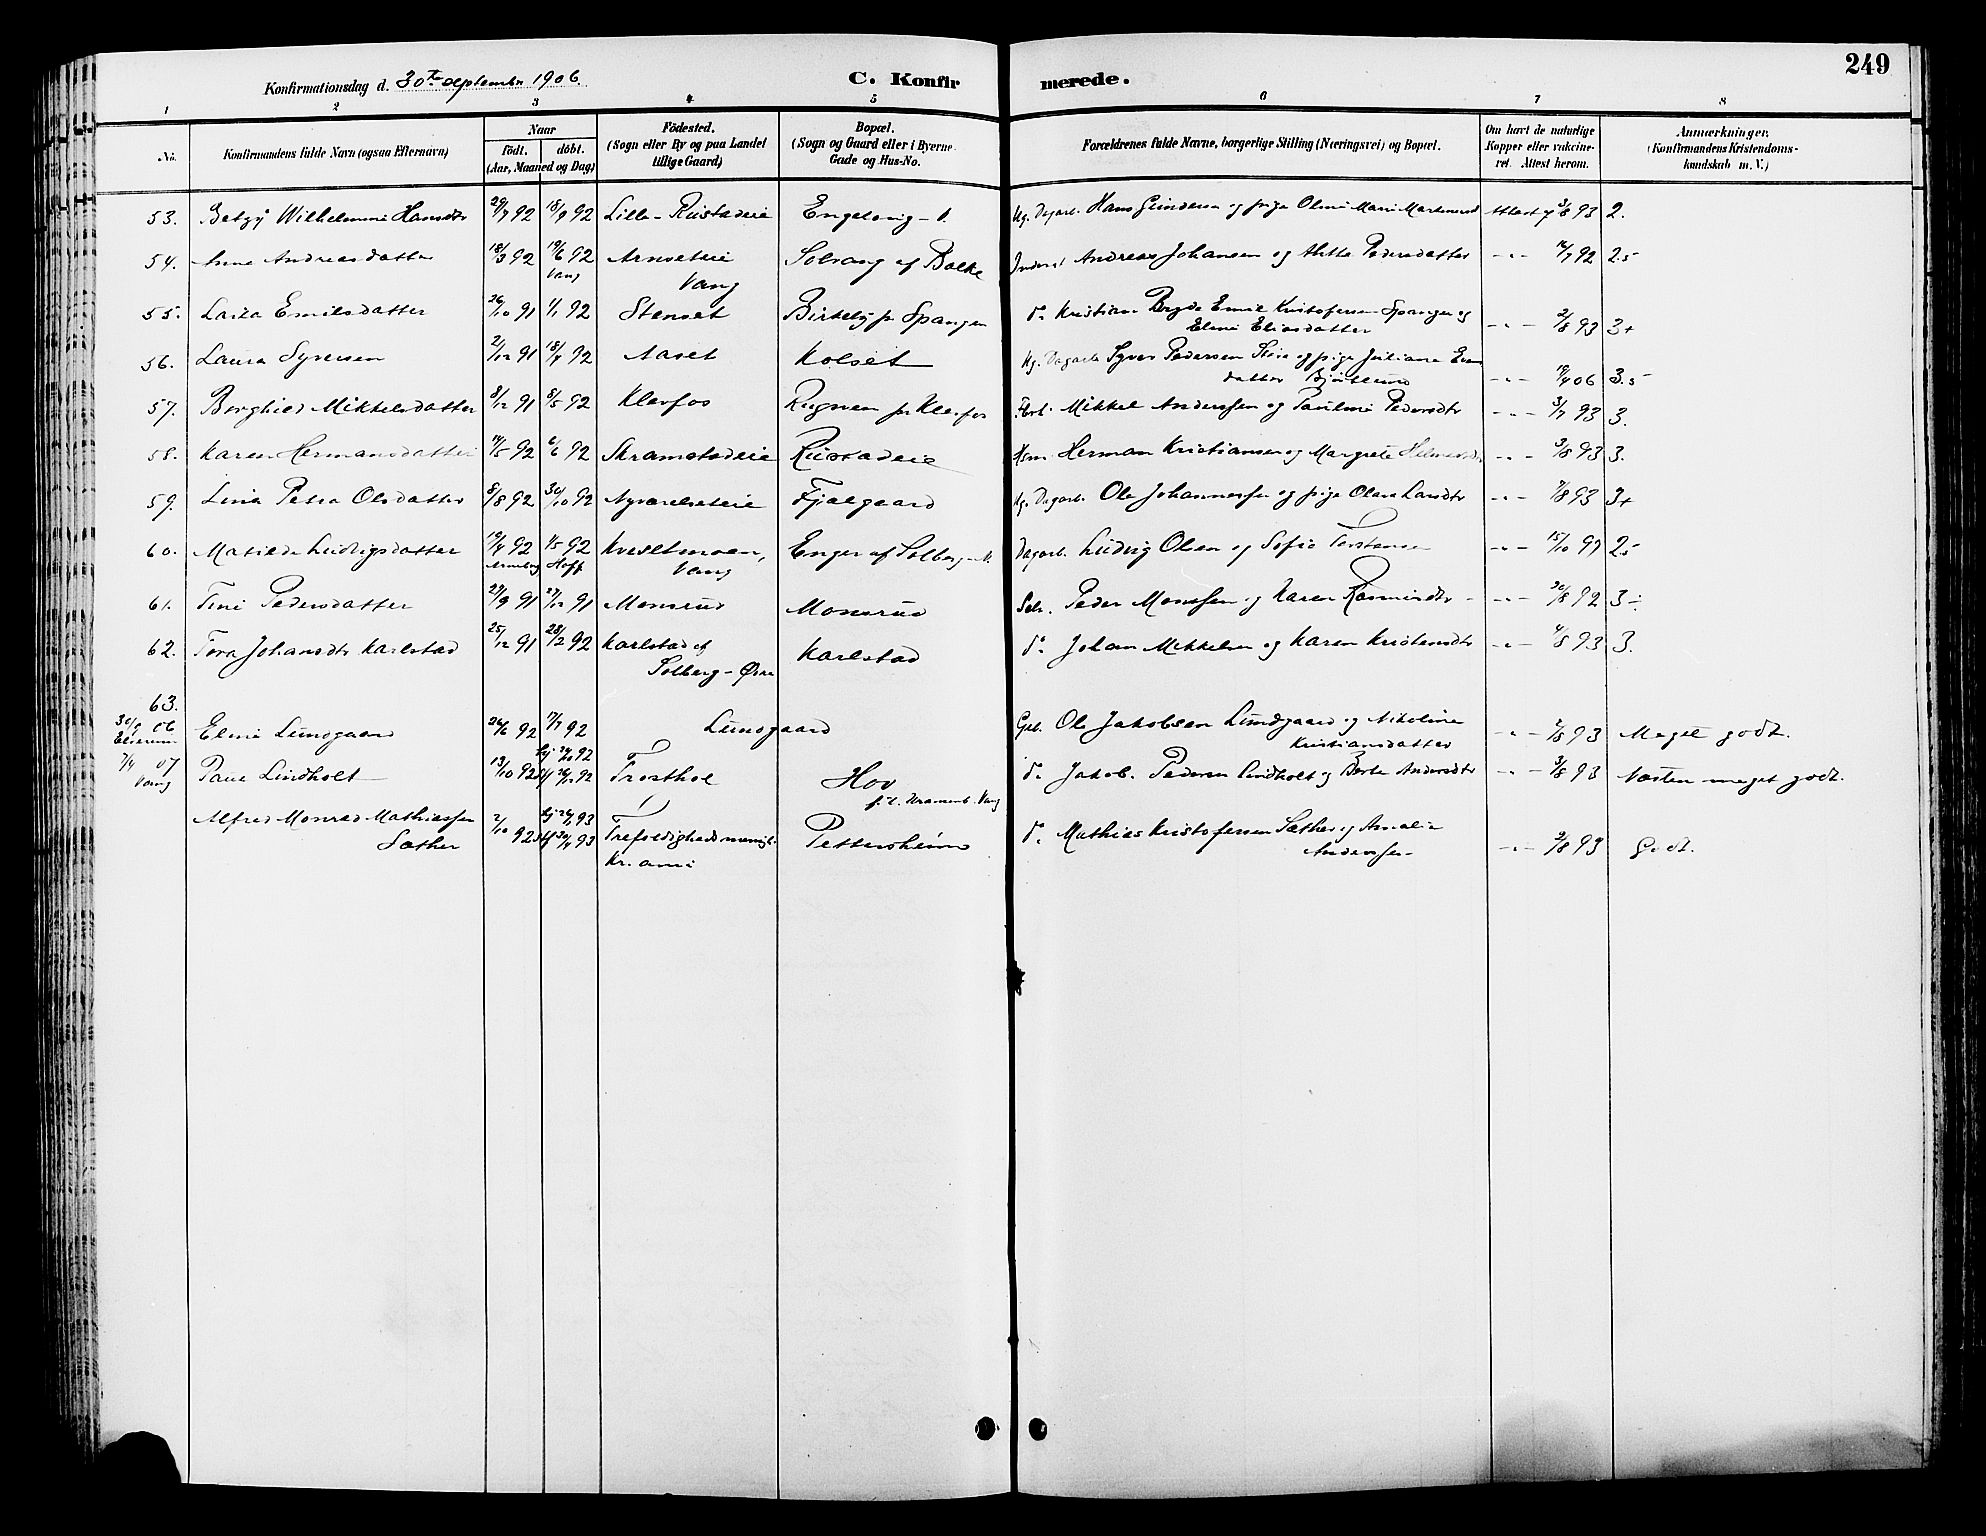 249
Konfirmationsdag d. 30te September 1906.
C. Konfirmerede.
1 2 3 4 5 6 7 8
No.
Konfirmandens fulde Navn (ogsaa Efternavn)
Naar
Födt. döbt.
(Aar, Maaned og Dag)
Födested.
(Sogn eller By og paa Landet
tillige Gaard)
Bopæl.
(Sogn og Gaard eller i Byerne
Gade og Hus-No.
Forældrenes fulde Navne, borgerlige Stilling (Næringsvei) og Bopæl.
Om havt de naturlige
Kopper eller vakcine-
ret. Attest herom.
Anmærkninger.
(Konfirmandens Kristendoms-
kundskab m. V.)
53. Betzy Wilhelmine Hansdtr 29/7 92 18/9 92 Lille-Rustadeie Engelvrig Ug. Dagarb. Hans Gundersen og pige Oline Marie Attest 3/8 93 2.
54. Anne Andreasdatter 18/3 92 19/6 92 Arnseteie Solvang af Bolke Inderst Andreas Johansen og Pedersdatter -"- 12/7 92 2.5
Vang Vang
55. Laura Emilsdatter 26/10 91 1/1 92 Stenset Birkely pr Spangen d. Kristian Emil Kristofersen Spangen og
Eline Eliasdatter -"- 2/8 93 3+
56. Laura Syversen 2/12 91 18/4 92 Aaset Kolset Ug. Dagarb. Syver Pedersen og pige Juliane Even
datter -"- 19/4 06 3.5
57. Borghild Mikkelsdatter 8/12 91 8/5 92 Klevfos Rugnen pr Klevfos Mikkel Anderssen og Pauline Pedersdtr -"- 3/7 93 3.
58. Karen Hermansdatter 14/5 92 6/6 92 Skramstadeie Rustadeie Hsm. Herman Kristiansen og Margrete -"- 3/8 93 3.
59. Lina Petra Olsdatter 8/8 92 30/10 92 Fjælgaard Ug. Dagarb. Ole Johannessen og pige Olava Larsdtr -"- 7/8 93 3+
60. Matilde Ludvigsdatter 19/4 92 1/5 92 Kveltmoen, Enger af Solberg Dagarb. Ludvig Olsen og Sofie Torstensen -"- 15/10 97 2.5
Hoff Vang
61. Tine Pedersdatter 29/9 91 27/12 91 Monsrud Monsrud Selv. Peder Monssen og Karen Rasmusdtr -"- 20/8 92 3÷
62. Tora Johansdtr Karlstad 25/12 91 28/2 92 Karlstad af Karlstad d. Johan Mikkelsen og Karen Kristensdtr -"- 4/8 93 3.
Solberg-Øvre
63.
30/9 06
Elverum Eline Lundgaard 26/6 92 17/7 92 Lundgaard Gbr. Ole Jakobsen Lundgaard og Nikoline
Kristiansdatter -"- 2/8 93 Meget godt.
7/4 07
Vang Paul Lindholt 13/10 92 Hj 24/10 92 Frosthol Hov d. Jakob Pedersen Lindholt og Berte Andersdtr -"- 3/8 93 Næsten meget godt.
Vang
Alfred Monrad Mathiassen
Sæther 2/10 92 93 Trefoldighedsmenigh. Pettersheim d. Mathias Kristofersen Sæther og Amalie
Kr.ania Anderssen -"- 2/8 93 Godt.